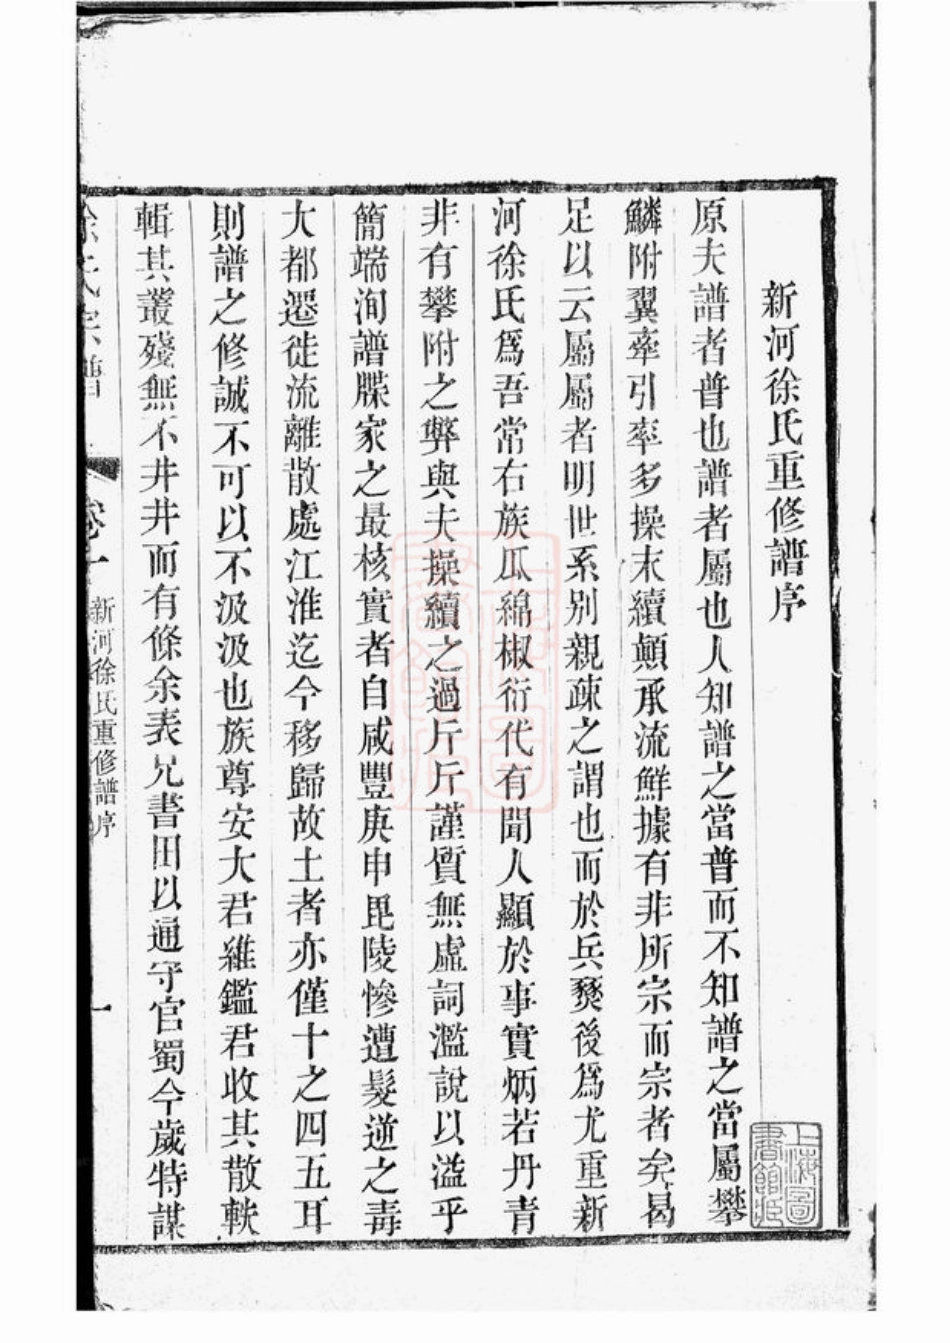 新河徐氏重修譜序
原夫譜者普也譜者屬也人知譜之當普而不知譜之當屬攀
鱗附翼牽引率多操末續顛承流鮮據有非所宗而宗者矣曷
足以云屬屬者明世系别親疎之謂也而於兵燹後爲尤重新
河徐氏爲吾常右族瓜綿椒衍代有聞人顯於事實炳若丹青
非有攀附之弊與夫操續之過斤斤謹質無虛詞濫說以溢乎
簡端洵譜牒家之最核實者自咸豐庚申毘陵慘遭髮逆之毒
大都遷徙流離散處江淮迄今移歸故土者亦僅十之四五耳
則譜之修誠不可以不汲汲也族尊安大君維鑑君收其散軼
輯其叢殘無不井井而有條余表兄書田以通守官蜀今歲特謀
徐氏宗譜 卷一 新河徐氏重修譜序 一
上海圖書館藏